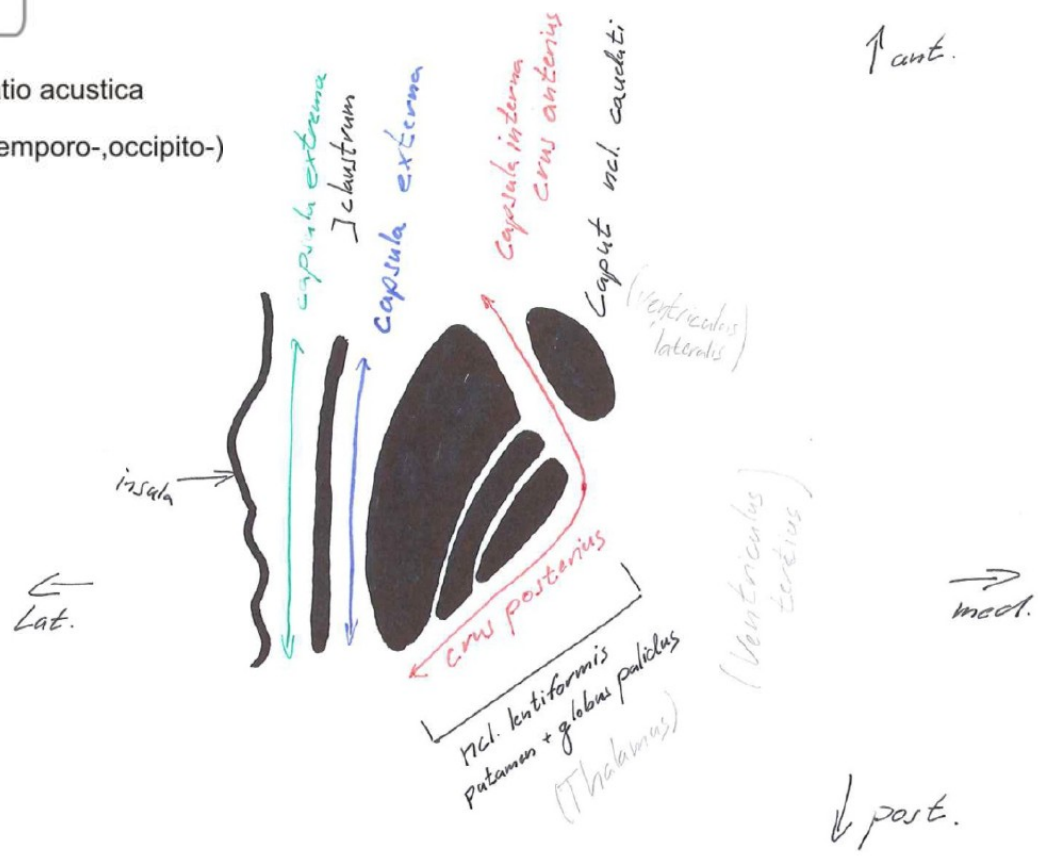 tio acustica
emporo-,occipito-)
↑ ant.
capsula extrema
]claustrum
capsula externa
capsula interna
crus anterius
Caput ncl. caudati
(ventriculus
lateralis)
insula
← Lat.
crus posterius
(Ventriculus
tertius)
→ med.
ncl. lentiformis
putamen + globus palidus
(Thalamus)
↓ post.